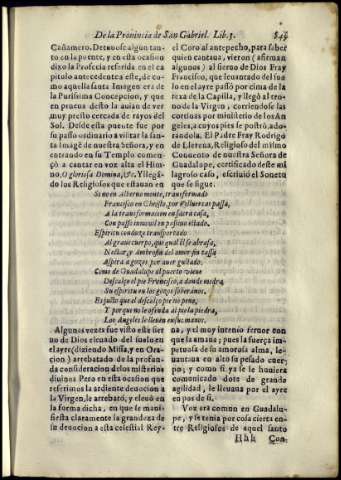 De la Prouincia de San Gabriel. Lib. 5. 849
Cañamero. Detuuose algun tan-
to en la puente, y en esta ocasion
dixo la Profecia referida en el ca
pitulo antecedente a este, de co-
mo aquella santa Imagen era de
la Purissima Concepcion, y que
en prueua desto la auian de ver
muy presto cercada de rayos del
Sol. Desde esta puente fue por
su passo ordinario a visitar la san-
ta imagẽ de nuestra Señora, y en
entrando en su Templo comen-
çò a cantar en voz alta el Him-
no, O gloriosa Domina, &c. Y llegã-
do los Religiosos que estauan en
el Coro al antepecho, para saber
quien cantaua, vieron (afirman
algunos) al sieruo de Dios Fray
Francisco, que leuantado del sue
lo en el ayre passò por cima de la
rexa de la Capilla, y llegò al tro-
no de la Virgen, corriendose las
cortinas por ministerio de los An-
geles, a cuyos pies se postrò, ado-
randola. El Padre Fray Rodrigo
de Llerena, Religioso del mismo
Conuento de nuestra Señora de
Guadalupe, certificado deste mi
lagroso caso, escriuiò el Soneto
que se sigue.
Si no en Alberno monte, transformado
Francisco en Christo, por
A la transformacion en sacra casa,
Con passo inmovil en
Espiritu conduze transportado
Al graue cuerpo, que qual si se abrasa,
Nectar, y Ambrosia del amor sin tassa
Aspera a gozos, por auer gustado.
Como de Guadalupe al puerto viene
Descalço el pie Francisco, a donde medra
Su espiritu en los gozos soberanos.
Es justo que el descalço pie no pene,
Y porque no le ofenda al pie la piedra,
Los Angeles le lleuen en sus manos.
Algunas vezes fue visto este sier
uo de Dios eleuado del suelo en
el ayre (diziendo Missa, y en Ora
cion) arrebatado de la profun-
da consideracion de los misterios
diuinos Pero en esta ocasion que
referimos la ardiente deuocion a
la Virgen, le arrebatò, y eleuò en
la forma dicha, en que se mani-
fiesta claramente la grandeza de
su deuocion a esta celestial Rey-
na, y el muy intenso feruor con
que la amaua; pues la fuerça im-
petuosa de su amorosa alma, le-
uantaua en alto su pesado cuer-
po; y como si ya se le huuiera
comunicado dote de grande
agilidad, le lleuaua por el ayre
en pos de si.
Voz era comun en Guadalu-
pe, y se tenia por cosa cierta en-
tre Religiosos de aquel santo
Hhh Con-